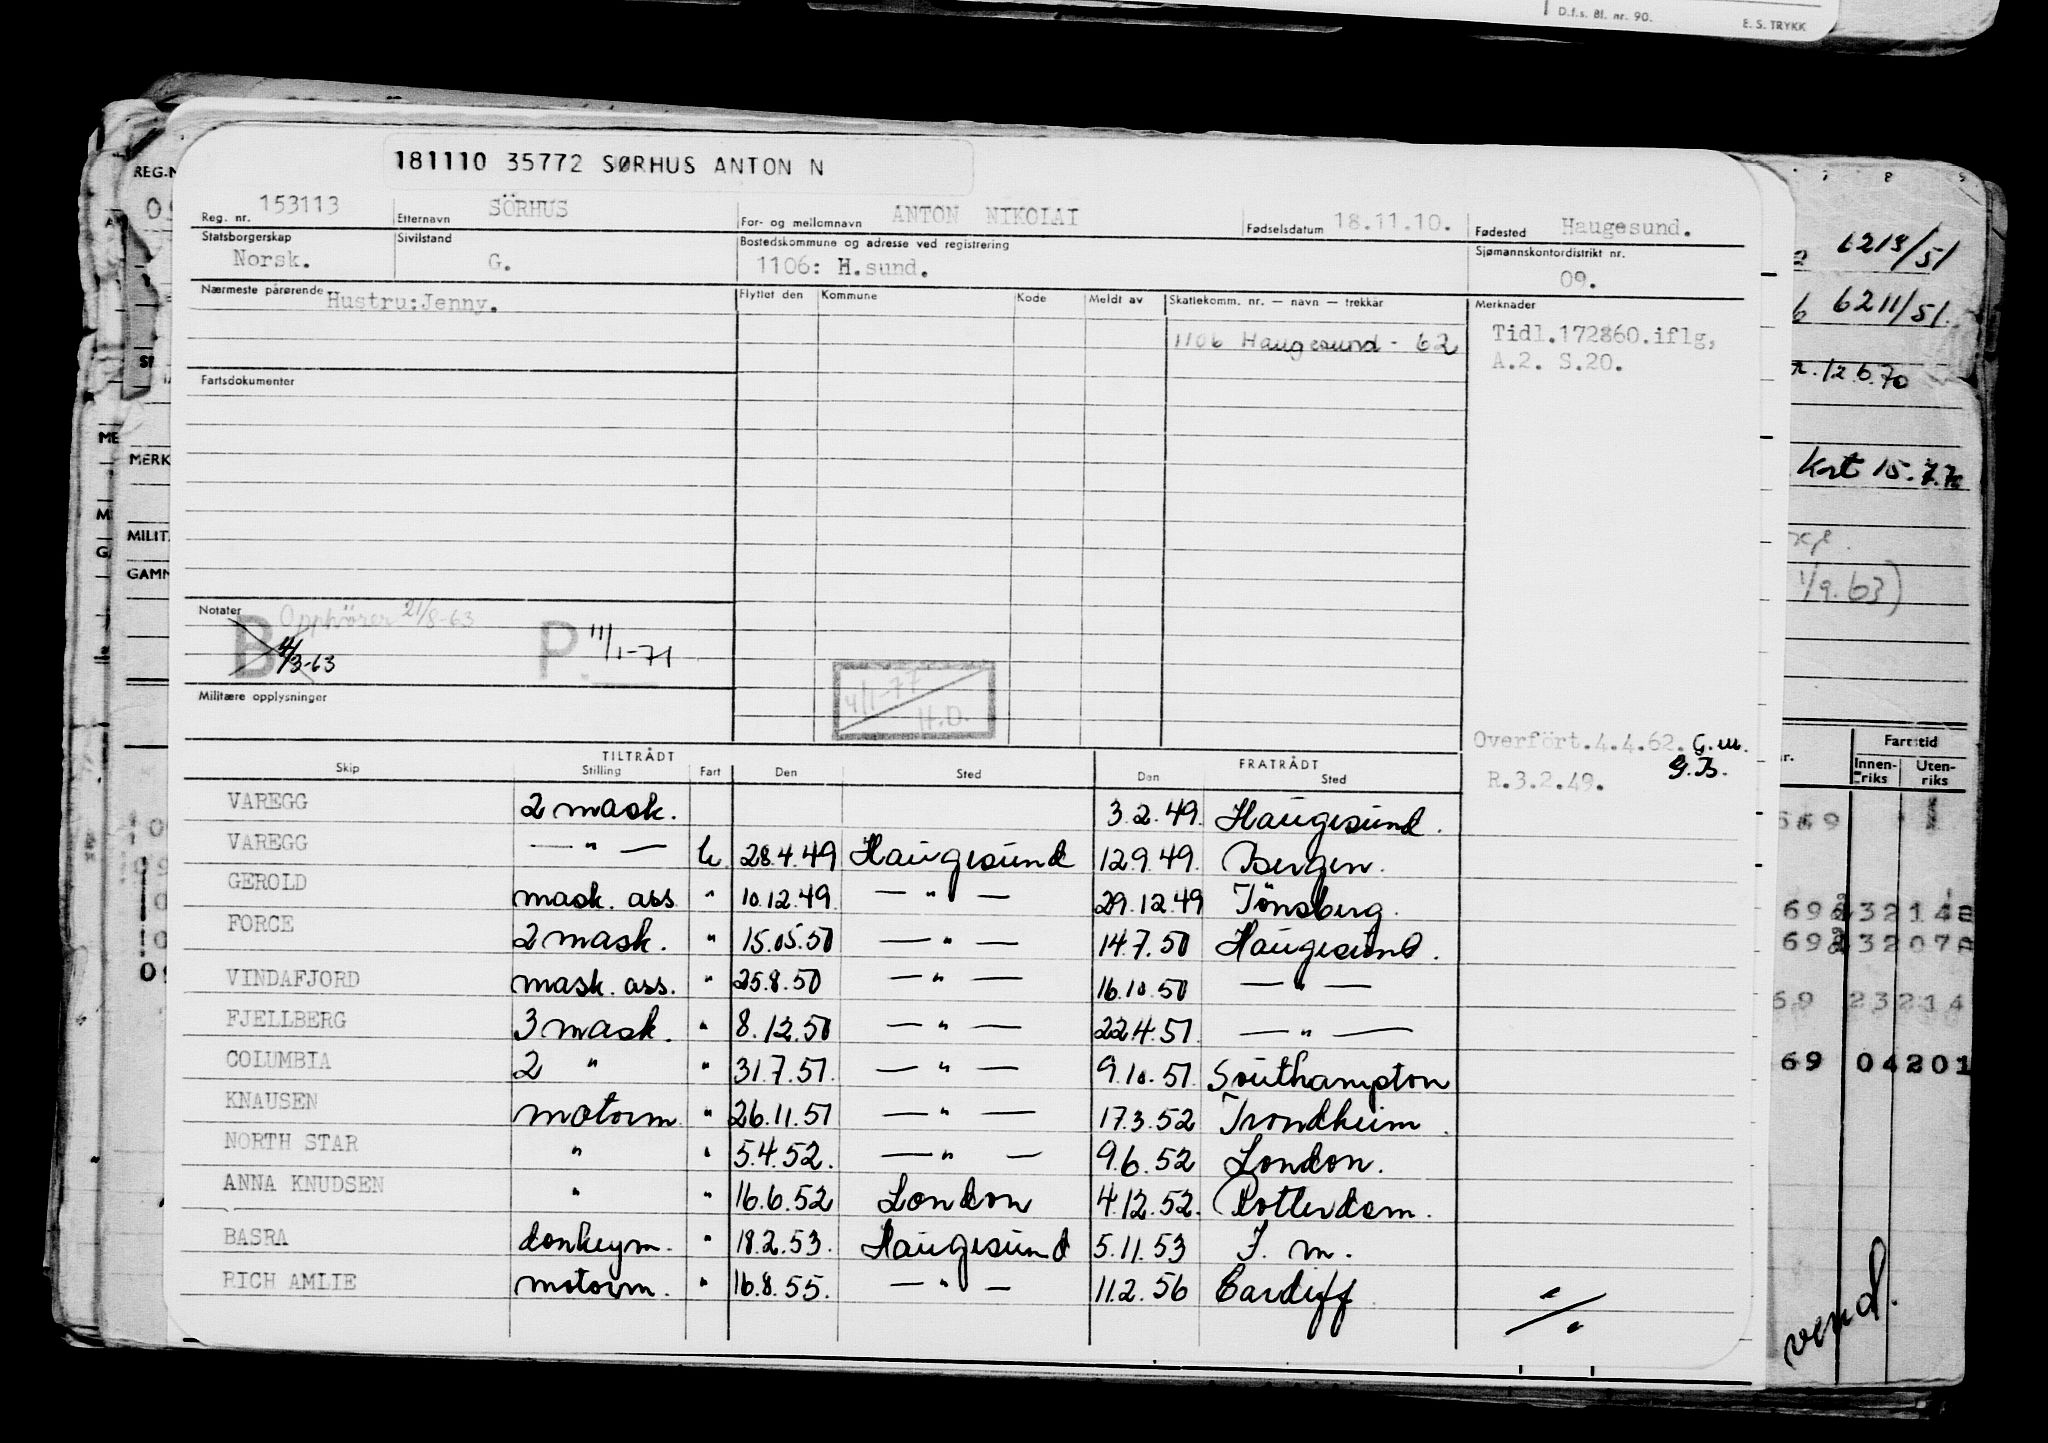 D.f.s. Bl. nr. 90. E. S. TRYKK
181110 35772 SØRHUS ANTON N
Reg. nr. 153113 Etternavn SÖRHUS For- og mellomnavn ANTON NIKOLAI Fødselsdatum 18.11.10. Fødested Haugesund.
Statsborgerskap Norsk. Sivilstand G. Bostedskommune og adresse ved registrering 1106: H.sund. Sjømannskontordistrikt nr. 09.
Nærmeste pårørende Hustru:Jenny. Flyttet den Kommune Kode Meldt av Skattekomm. nr. — navn — trekkår Merknader
1106 Haugesund - 62 Tidl.172860.iflg,
A.2. S.20.
Fartsdokumenter
Notater Opphörer 21/8-63
B 4/3-63 P 11/1-71
4/1-77 H.D.
Militære opplysninger
Overfört.4.4.62. G.M.
G.B.
R.3.2.49.
TILTRÅDT FRATRÅDT
Skip Stilling Fart Den Sted Den Sted
VAREGG 2 mask. 3.2.49. Haugesund.
VAREGG — " — U. 28.4.49 Haugesund 12.9.49. Bergen.
GEROLD mask. ass " 10.12.49. — " — 29.12.49 Tönsberg.
FORCE 2 mask. " 15.05.50 — " — 14.7.50 Haugesund.
VINDAFJORD mask. ass. " 25.8.50 — " — 16.10.50 — " —
FJELLBERG 3 mask. " 8.12.50 — " — 22.4.51. — " —
COLUMBIA 2 " " 31.7.51. — " — 9.10.51. Southampton
KNAUSEN motorm. " 26.11.51 — " — 17.3.52 Trondheim.
NORTH STAR " " 5.4.52. — " — 9.6.52 London.
ANNA KNUDSEN " " 16.6.52 London 4.12.52. Rotterdam.
BASRA donkeym. " 18.2.53. Haugesund 5.11.53 J. m.
RICH AMLIE motorm. " 16.8.55. — " — 11.2.56 Cardiff
REG.N
MERK
MILIT
GAMM
6213/51
6211/51.
12.6.70
Krt 15.7.70
1/9.63)
Fartstid
Innenriks Utenriks
69 23214
69 04201
vend.